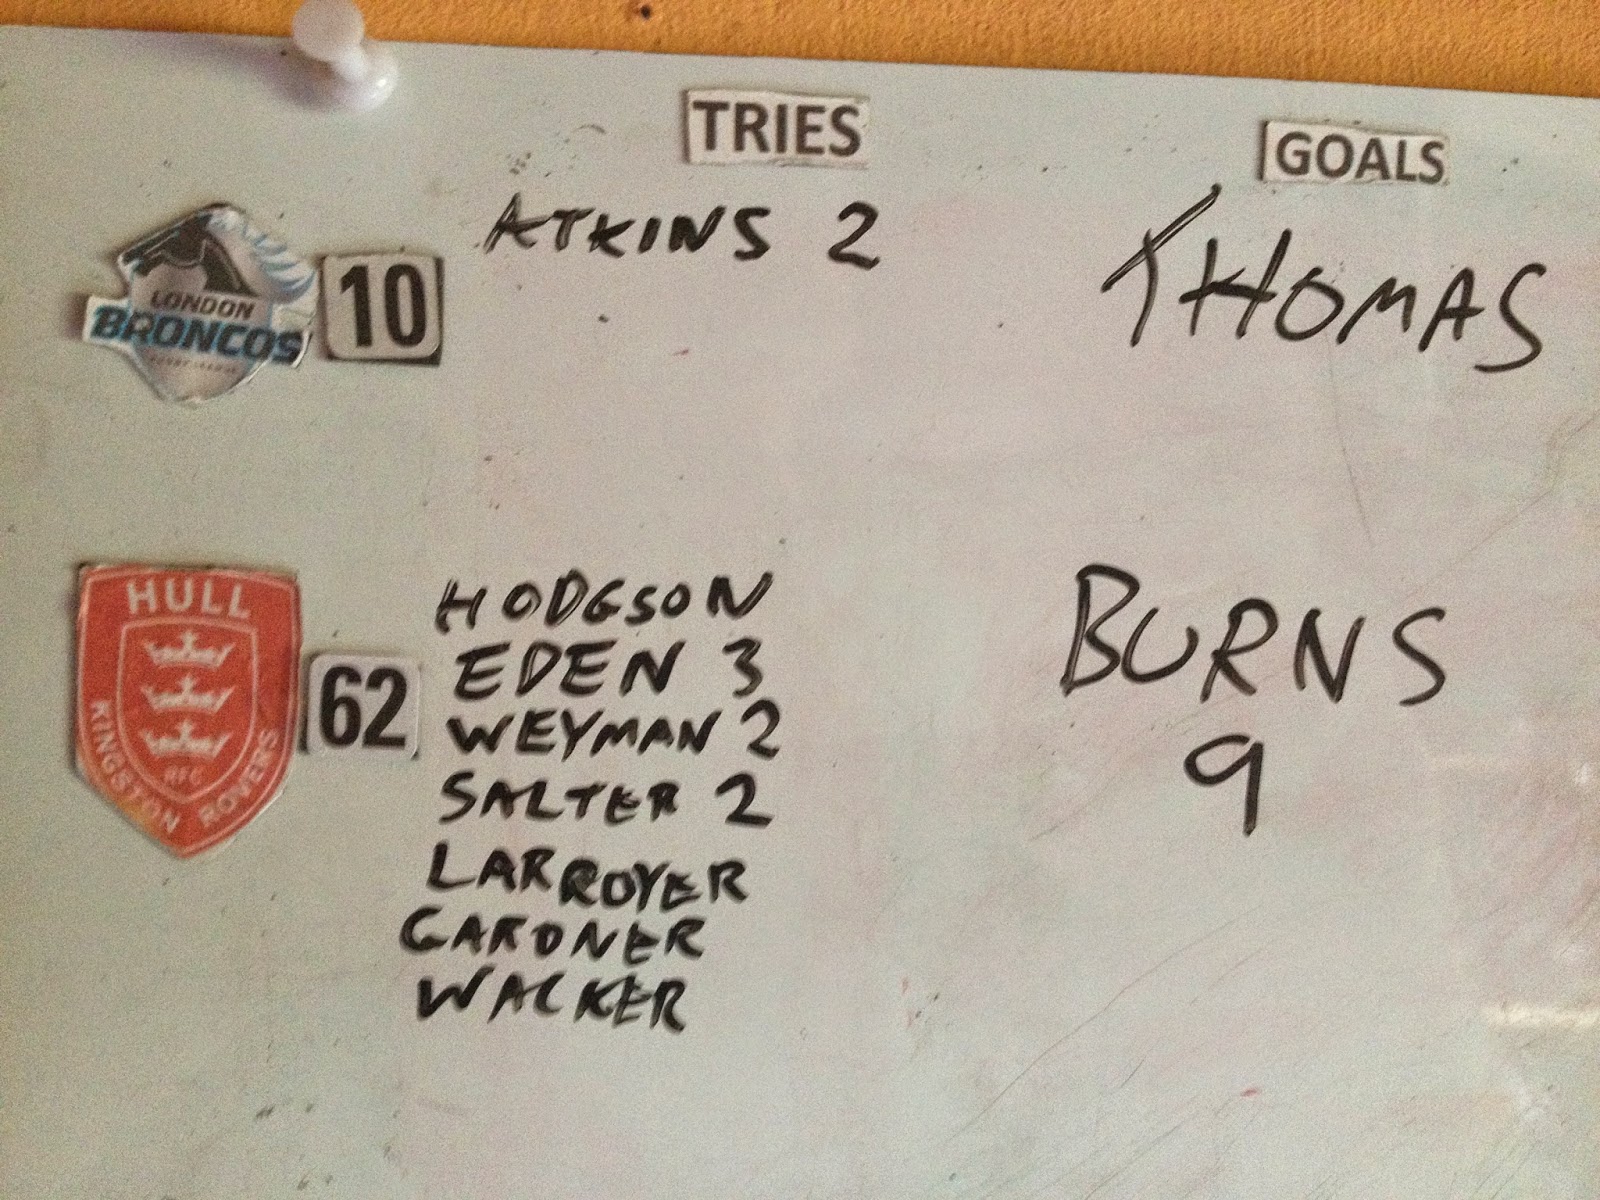 TRIES
GOALS
LONDON
BRONCOS
10
ATKINS 2
THOMAS
HULL
KINGSTON ROVERS
RFC
62
HODGSON
EDEN 3
WEYMAN 2
SALTER 2
LARROYER
GARDNER
WALKER
BURNS
9